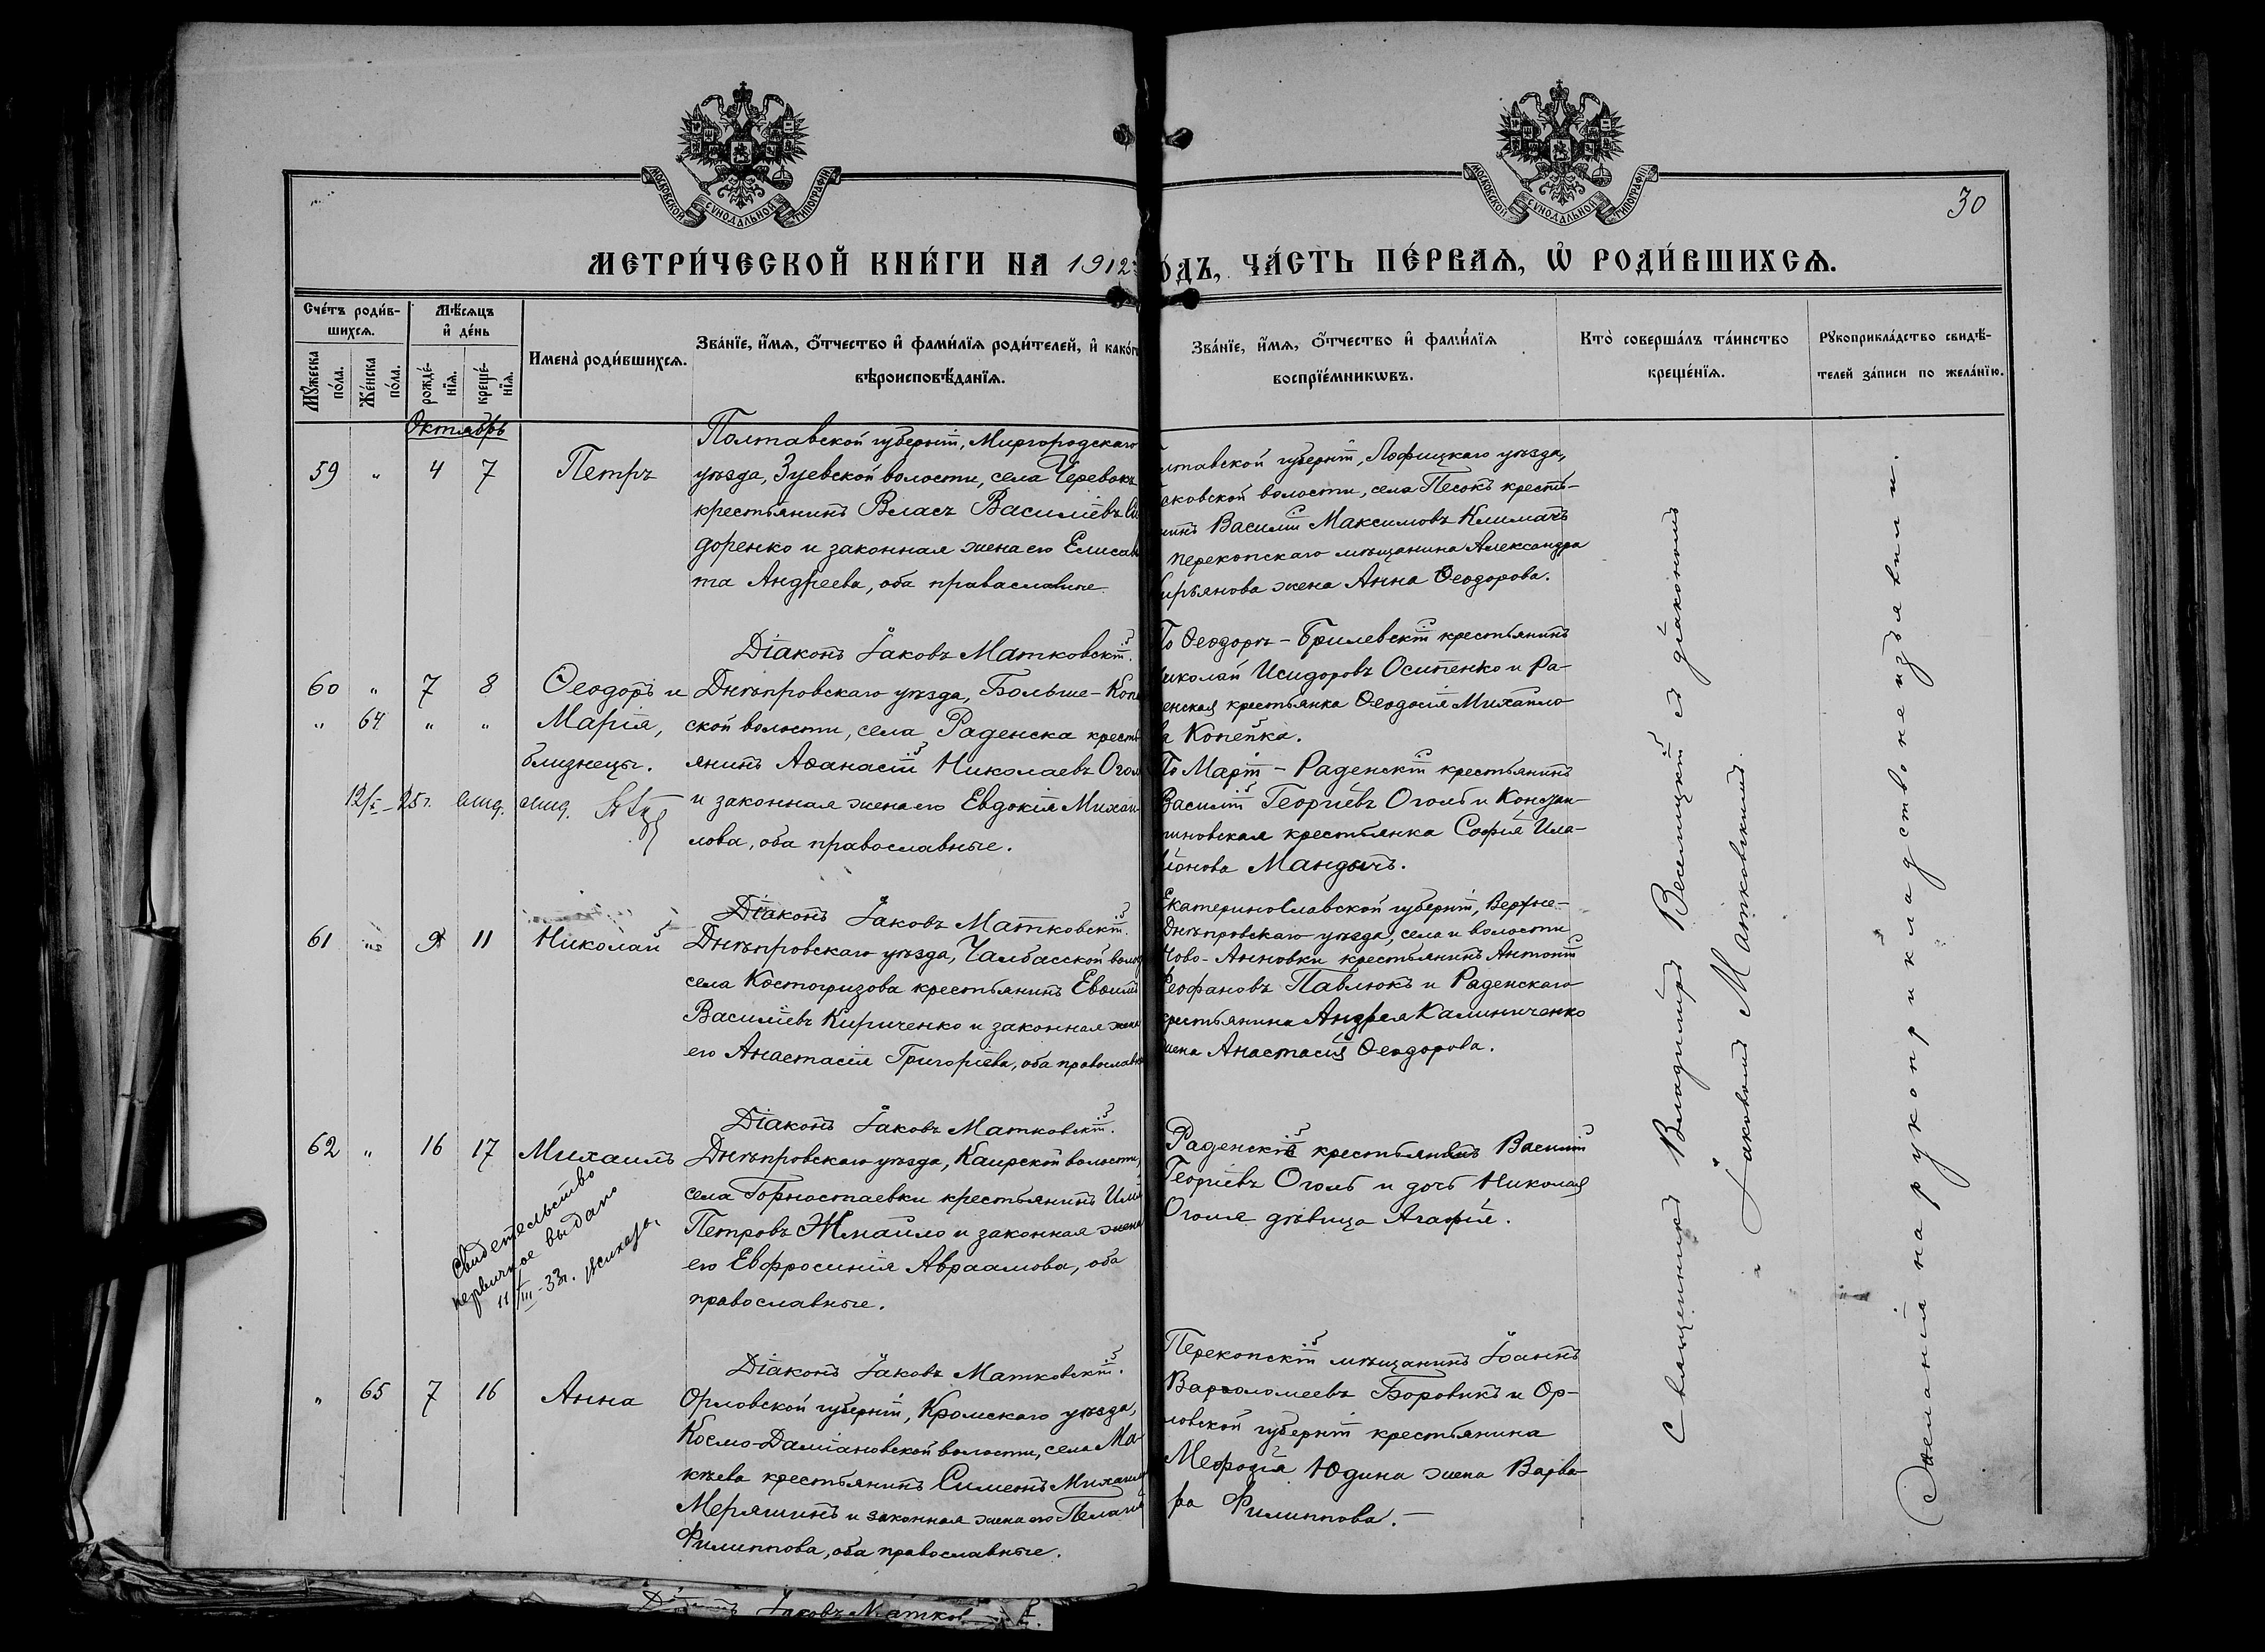 МОСКОВСКОЙ СѴНОДАЛЬНОЙ ТИПОГРАФІИ
МОСКОВСКОЙ СѴНОДАЛЬНОЙ ТИПОГРАФІИ
30
МЕТРИ́ЧЕСКОЙ КНИ́ГИ НА 1912
ѺДЪ, ЧА́СТЬ ПЕ́РВАѦ, Ѡ҆ РОДИ́ВШИХСѦ.
Сче́тъ роди́в-
шихсѧ.
Мꙋ́жеска по́ла.
Же́нска по́ла.
Мѣ́сѧцъ
и҆ де́нь
рожде́-
нїѧ.
креще́-
нїѧ.
Имена̀ роди́вшихсѧ.
Зва́нїе, и҆́мѧ, ѻ҆́тчество и҆ фами́лїѧ роди́телей, и҆ како́г
вѣроисповѣ́данїѧ.
Зва́нїе, и҆́мѧ, ѻ҆́тчество и҆ фами́лїѧ
воспрїе́мникѡвъ.
Кто̀ соверша́лъ та́инство
креще́нїѧ.
Рꙋкоприкла́дство свидѣ́-
телей за́писи по жела́нїю.
Октябрь
59 " 4 7 Петръ
Полтавской губерніи, Миргородскаго
уѣзда, Зуевской волости, села Черевокъ
крестьянинъ Власъ Василіевъ Си
доренко и законная жена его Елисаве
та Андреева, оба православные.
лтавской губерніи, Лофицкаго уѣзда,
сковской волости, села Песокъ кресть-
инъ Василій Максимовъ Климачъ
перекопскаго мѣщанина Александра
ирьянова жена Анна Ѳеодорова.
Діаконъ Іаковъ Матковскій.
60 " 7 8 Ѳеодоръ и
" 64 " " Марія,
близнецы.
12/I–25г. выд.
Днѣпровскаго уѣзда, Больше-Коп
ской волости, села Раденска кресть
янинъ Аѳанасій Николаевъ Огол
и законная жена его Евдокія Михаи
лова, оба православные.
По Ѳеодоръ – Брилевскій крестьянинъ
иколай Исидоровъ Осипенко и Ра-
енская крестьянка Ѳеодосія Михаило
а Копейка.
По Маріи – Раденскій крестьянинъ
Василій Георгіевъ Оголь и Констан-
тиновская крестьянка Софія Ила-
іонова Мандычъ.
Діаконъ Іаковъ Матковскій.
61 " 9 11 Николай
Днѣпровскаго уѣзда, Чалбасской воло
села Костогризова крестьянинъ Евѳимі
Василіевъ Кириченко и законная жена
его Анастасія Григоріева, оба православн
Екатеринославской губерніи, Верхне-
Днѣпровскаго уѣзда, села и волости
Ново-Анновки крестьянинъ Антоній
Ѳеофановъ Павлюкъ и Раденскаго
крестьянина Андрея Калиниченко
жена Анастасія Ѳеодорова.
Діаконъ Іаковъ Матковскій.
62 " 16 17 Михаилъ
Свидетельство
первичное выдано
11/III-33г.
Днѣпровскаго уѣзда, Каирской волости,
села Горностаевки крестьянинъ Илі
Петровъ Жмайло и законная жена
его Евфросинія Авраамова, оба
православные.
Раденскій крестьянинъ Василій
Георгіевъ Оголь и дочь Николая
Оголя дѣвица Агафія.
Діаконъ Іаковъ Матковскій.
" 65 7 16 Анна
Орловской губерніи, Кромскаго уѣзда,
Космо-Даміановской волости, села Ма-
кѣева крестьянинъ Симеонъ Михаил
Меряшинъ и законная жена его Пелагія
Филиппова, оба православные.
Перекопскій мѣщанинъ Іоаннъ
Варѳоломеевъ Боровикъ и Ор-
ловской губерніи крестьянина
Меѳодія Юдина жена Варва-
ра Филиппова. –
Священникъ Владимиръ Веселицкій съ діакономъ
Іаковомъ Матковскимъ.
Желаній на рукоприкладство не изъявили.
Діаконъ Іаковъ Матков